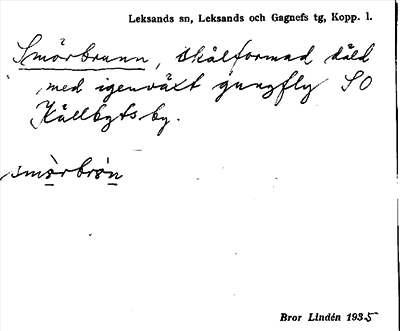 Leksands sn, Leksands och Gagnefs tg, Kopp. l.
Smörbrunn, skålformad däld
med igenväxt gungfly SO
Källbyts by.
smòrbrón
Bror Lindén 1935